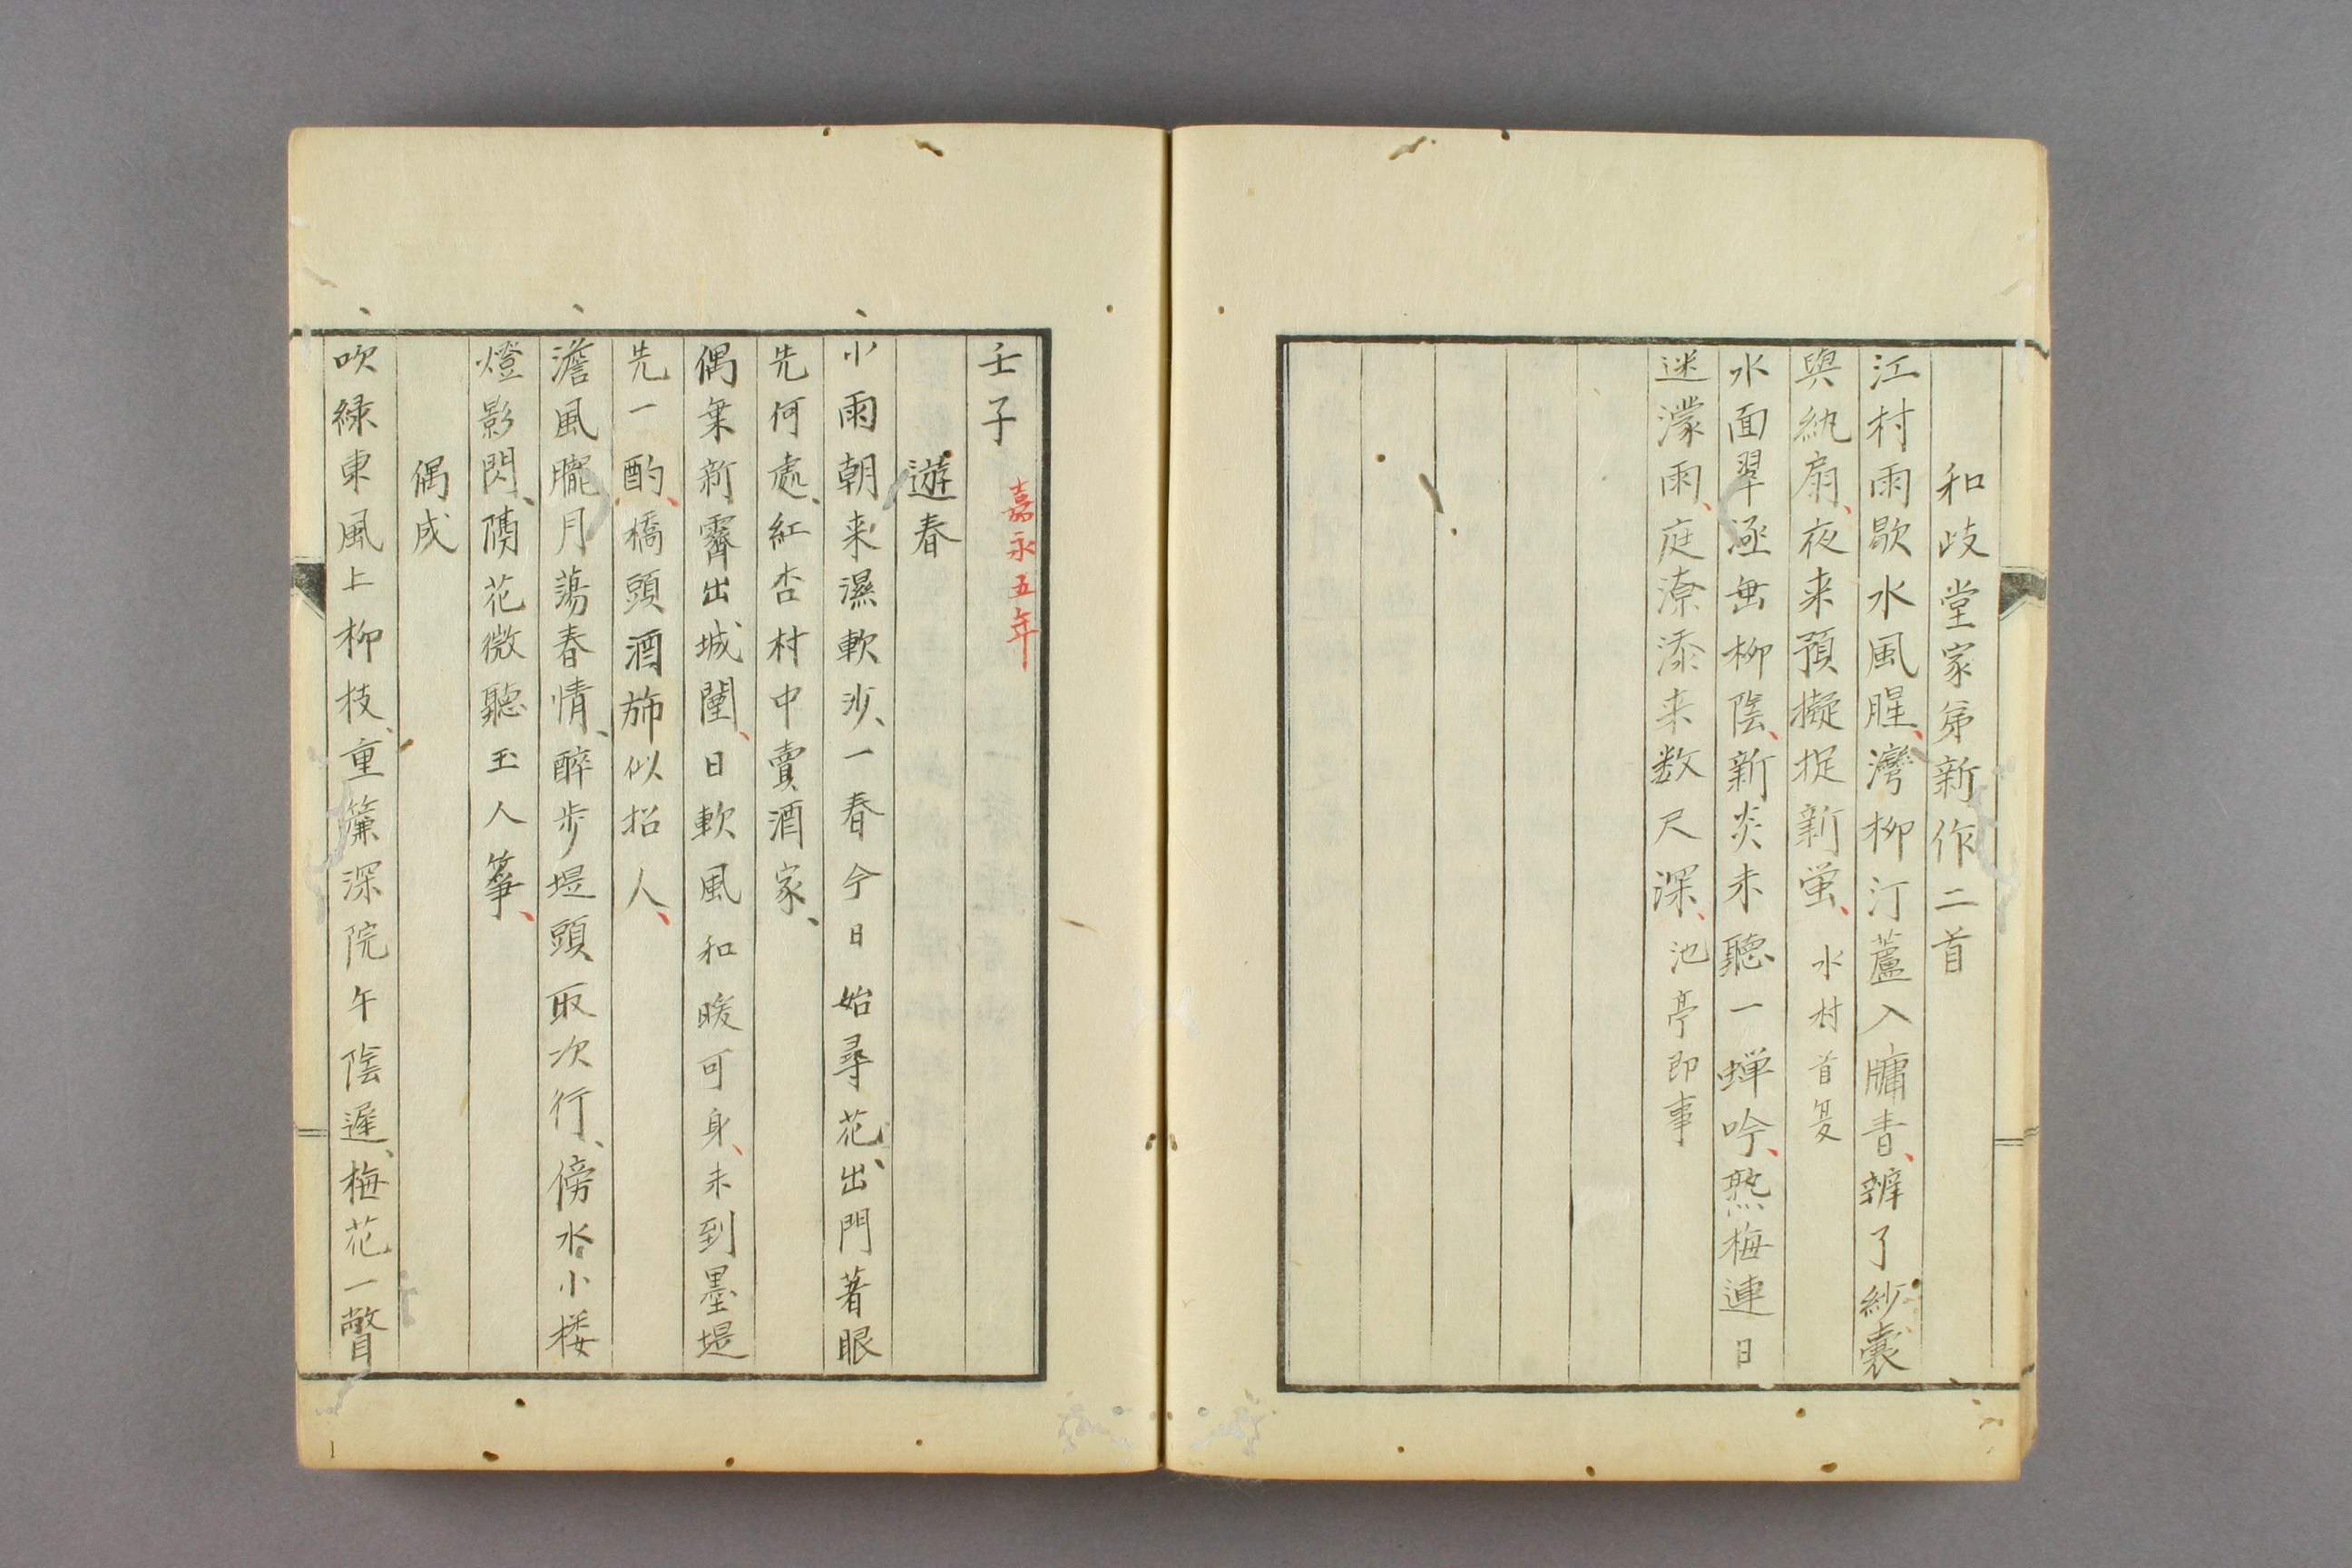 和歧堂家弟新作二首
江村雨歇水風腥、灣柳汀蘆入牗青、辨了紗囊
與紈扇、夜来預擬捉新蛍、水村首夏
水面翠逐毎柳陰、新炎未聴一蝉吟、熟梅連日
迷濛雨、庭潦添来数尺深、池亭即事
壬子
嘉永五年
遊春
小雨朝来濕軟沙、一春今日始尋花、出門著眼
先何處、紅杏村中賣酒家、
偶乗新霽出城闉、日軟風和暖可身、未到墨堤
先一酌、橋頭酒斾似招人、
澹風朧月蕩春情、醉步堤頭取次行、傍水小楼
燈影閃、隔花微聽玉人筝、
偶成
吹緑東風上柳枝、重簾深院午陰遲、梅花一瞥